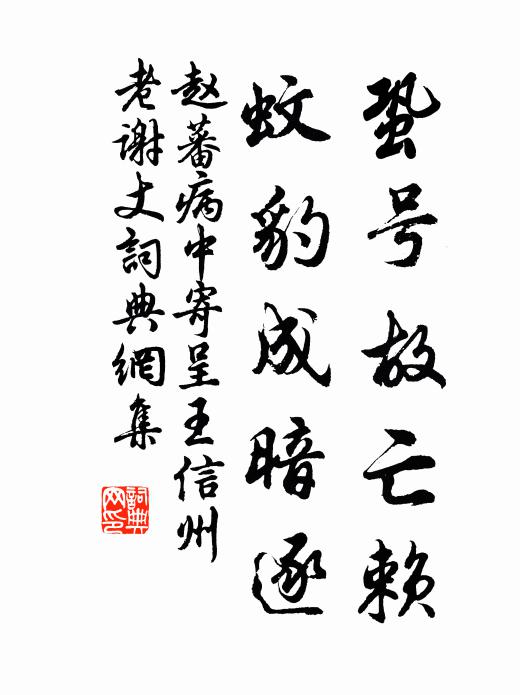 蛩号故亡赖
蚊豹成暗逐
赵蕃病中寄呈王信州
老谢丈詞典網集
詞典网印